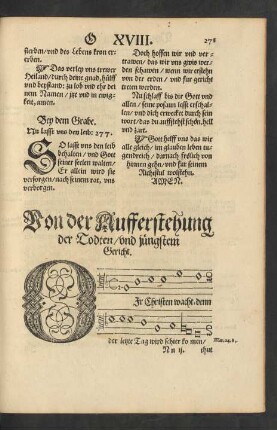 G XVIII. 278
sterben/ vnd des Lebens kron er-
erben.
Das verley vns trewer
Heiland/ durch deine gnad/ hülff
vnd beystand: zu lob vnd ehr dei-
nem Namen/ jtzt vnd in ewig-
keit, amen.
Bey dem Grabe.
Nu lasst vns den leib: 277.
SO lasst vns den leib
behalten/ vnd Gott
seiner seelen walten/
Er allein wird sie
versorgen/ nach seinem rat, vns
verborgen.
Doch hoffen wir vnd ver-
trawen/ das wir vns gwis wer-
den schawen/ wenn wir erstehn
von der erden/ vnd für gericht
treten werden.
Nu schlaff bis die Gott vnd
allen/ seine posaun lesst erschal-
len/ vnd dich erwecke durch sein
wort/ das du aufstehst schön, hell
vnd zart.
Gott helff vns das wir
alle gleich/ im glauben leben tu-
gendreich/ darnach frölich von
hinnen gehn/ vnd für seinem
Richstul wolstehn.
AMEN.
Von der Aufferstehung
der Todten/ vnd jüngstem
Gericht.
Ir Christen wacht, denn
der letzte Tag wird schier ko men/
Mat. 24. a.
N n ij. thut